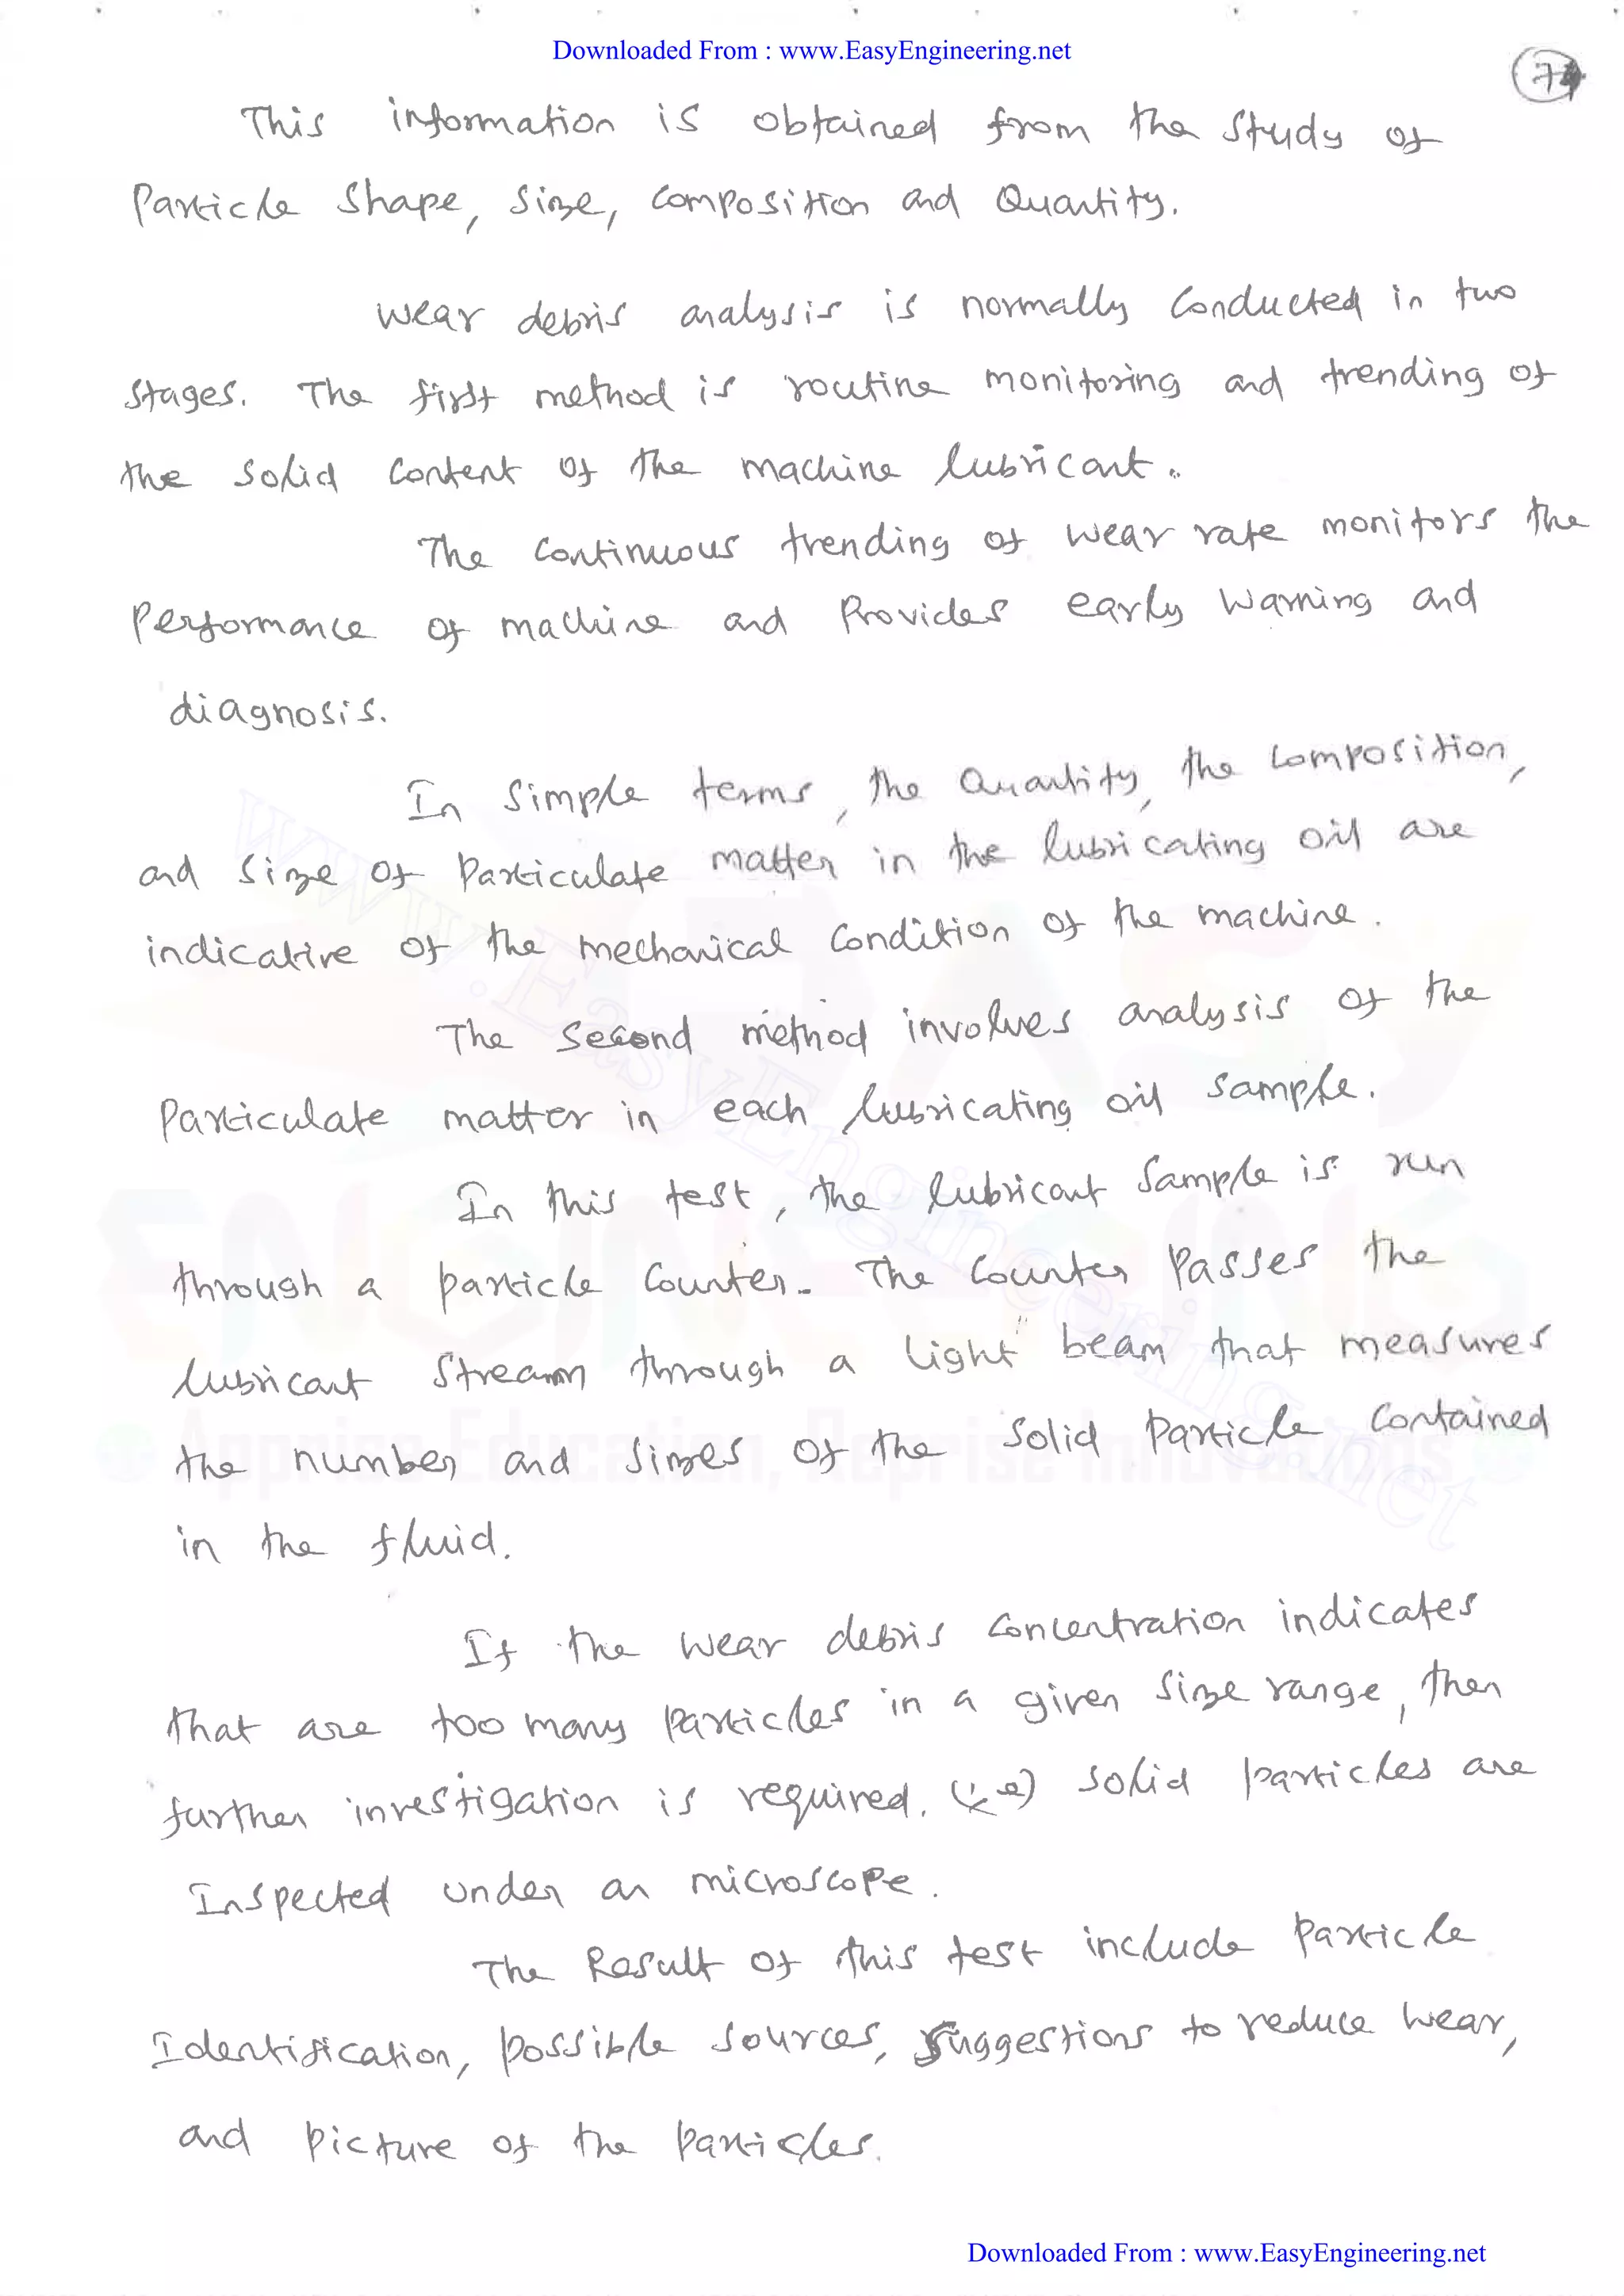 Downloaded From : www.EasyEngineering.net
74
This information is obtained from the study of
Particle Shape, Size, Composition and Quantity.
Wear debris analysis is normally Conducted in two
Stages. The first method is routine monitoring and trending of
the Solid Content of the machine lubricant.
The Continuous trending of wear rate monitors the
Performance of machine and Provides early Warning and
diagnosis.
In Simple terms, the Quantity, the Composition,
and Size of Particulate matter in the lubricating oil are
indicative of the mechanical Condition of the machine.
The Second method involves analysis of the
Particulate matter in each lubricating oil Sample.
In this test, the lubricant Sample is run
through a particle Counter. The Counter Passes the
lubricant Stream through a light beam that measures
the number and Sizes of the Solid Particle Contained
in the fluid.
If the Wear debris Concentration indicates
that are too many particles in a given Size range, then
further investigation is required. (i.e) Solid particles are
Inspected under an microscope.
The Result of this test include Particle
Identification, possible Sources, Suggestions to reduce Wear,
and Picture of the Particles.
www.EasyEngineering.net
EASY
ENGINEERING
Apprise Education, Reprise Innovations
Downloaded From : www.EasyEngineering.net